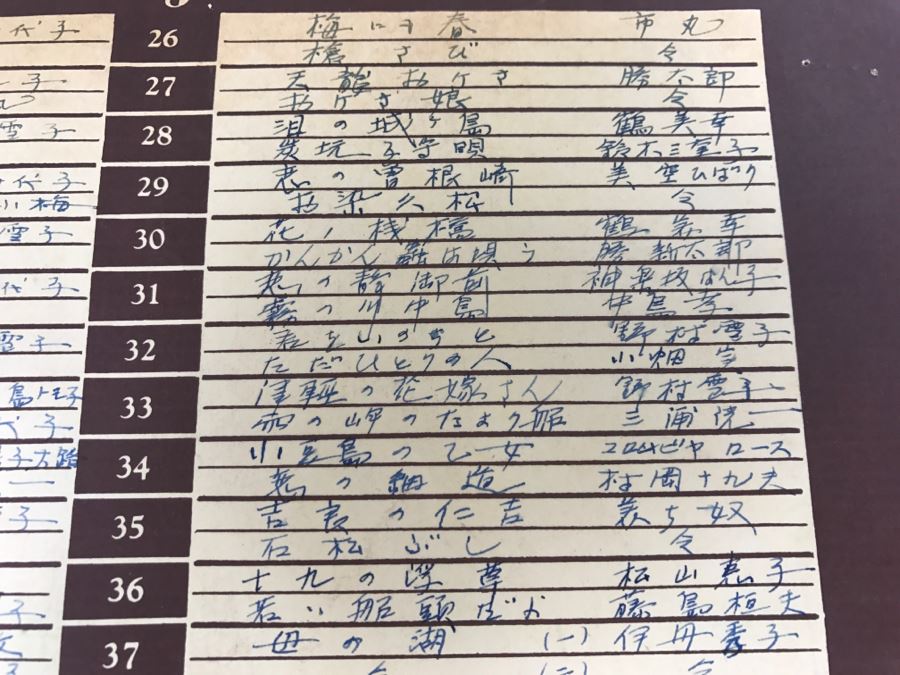 代子
26 梅にも春 市丸
槍さび 仝
子 27 天龍おけさ 勝太郎
おけさ娘 仝
雪子 28 泪の城ヶ島 鶴美幸
炭坑子守唄 鈴木三重子
代子 29 恋の曽根崎 美空ひばり
小梅 お染久松 仝
雪子 30 花ノ桟橋 鶴美幸
かんかん虫は唄う 勝新太郎
代子 31 恋の静御前 神楽坂はん子
霧の川中島 中島孝
雪子 32 君をいのちと 野村雪子
ただひとりの人 小畑実
島トモ子 33 津軽の花嫁さん 野村雪子
子 雨の岬のたより船 三浦洸一
34 小豆島の乙女 コロムビヤロース
恋の細道 村岡十九夫
子 35 吉良の仁吉 美ち奴
石松ぶし 仝
36 十九の浮草 松山恵子
子 若い船頭だよ 藤島桓夫
37 母の湖 (一) 伊丹秀子
子 仝 (二) 仝